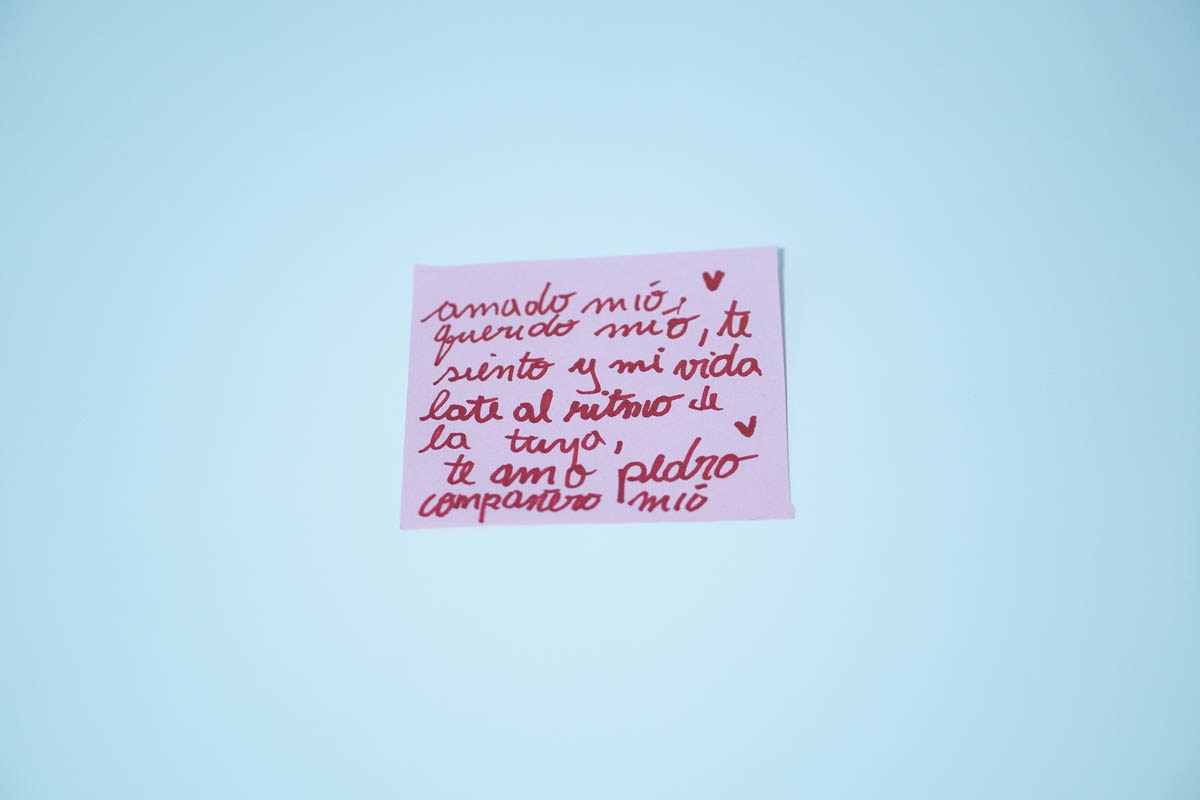 amado mió,
querido mió, te
siento y mi vida
late al ritmo de
la tuya,
te amo pedro
compañero mió